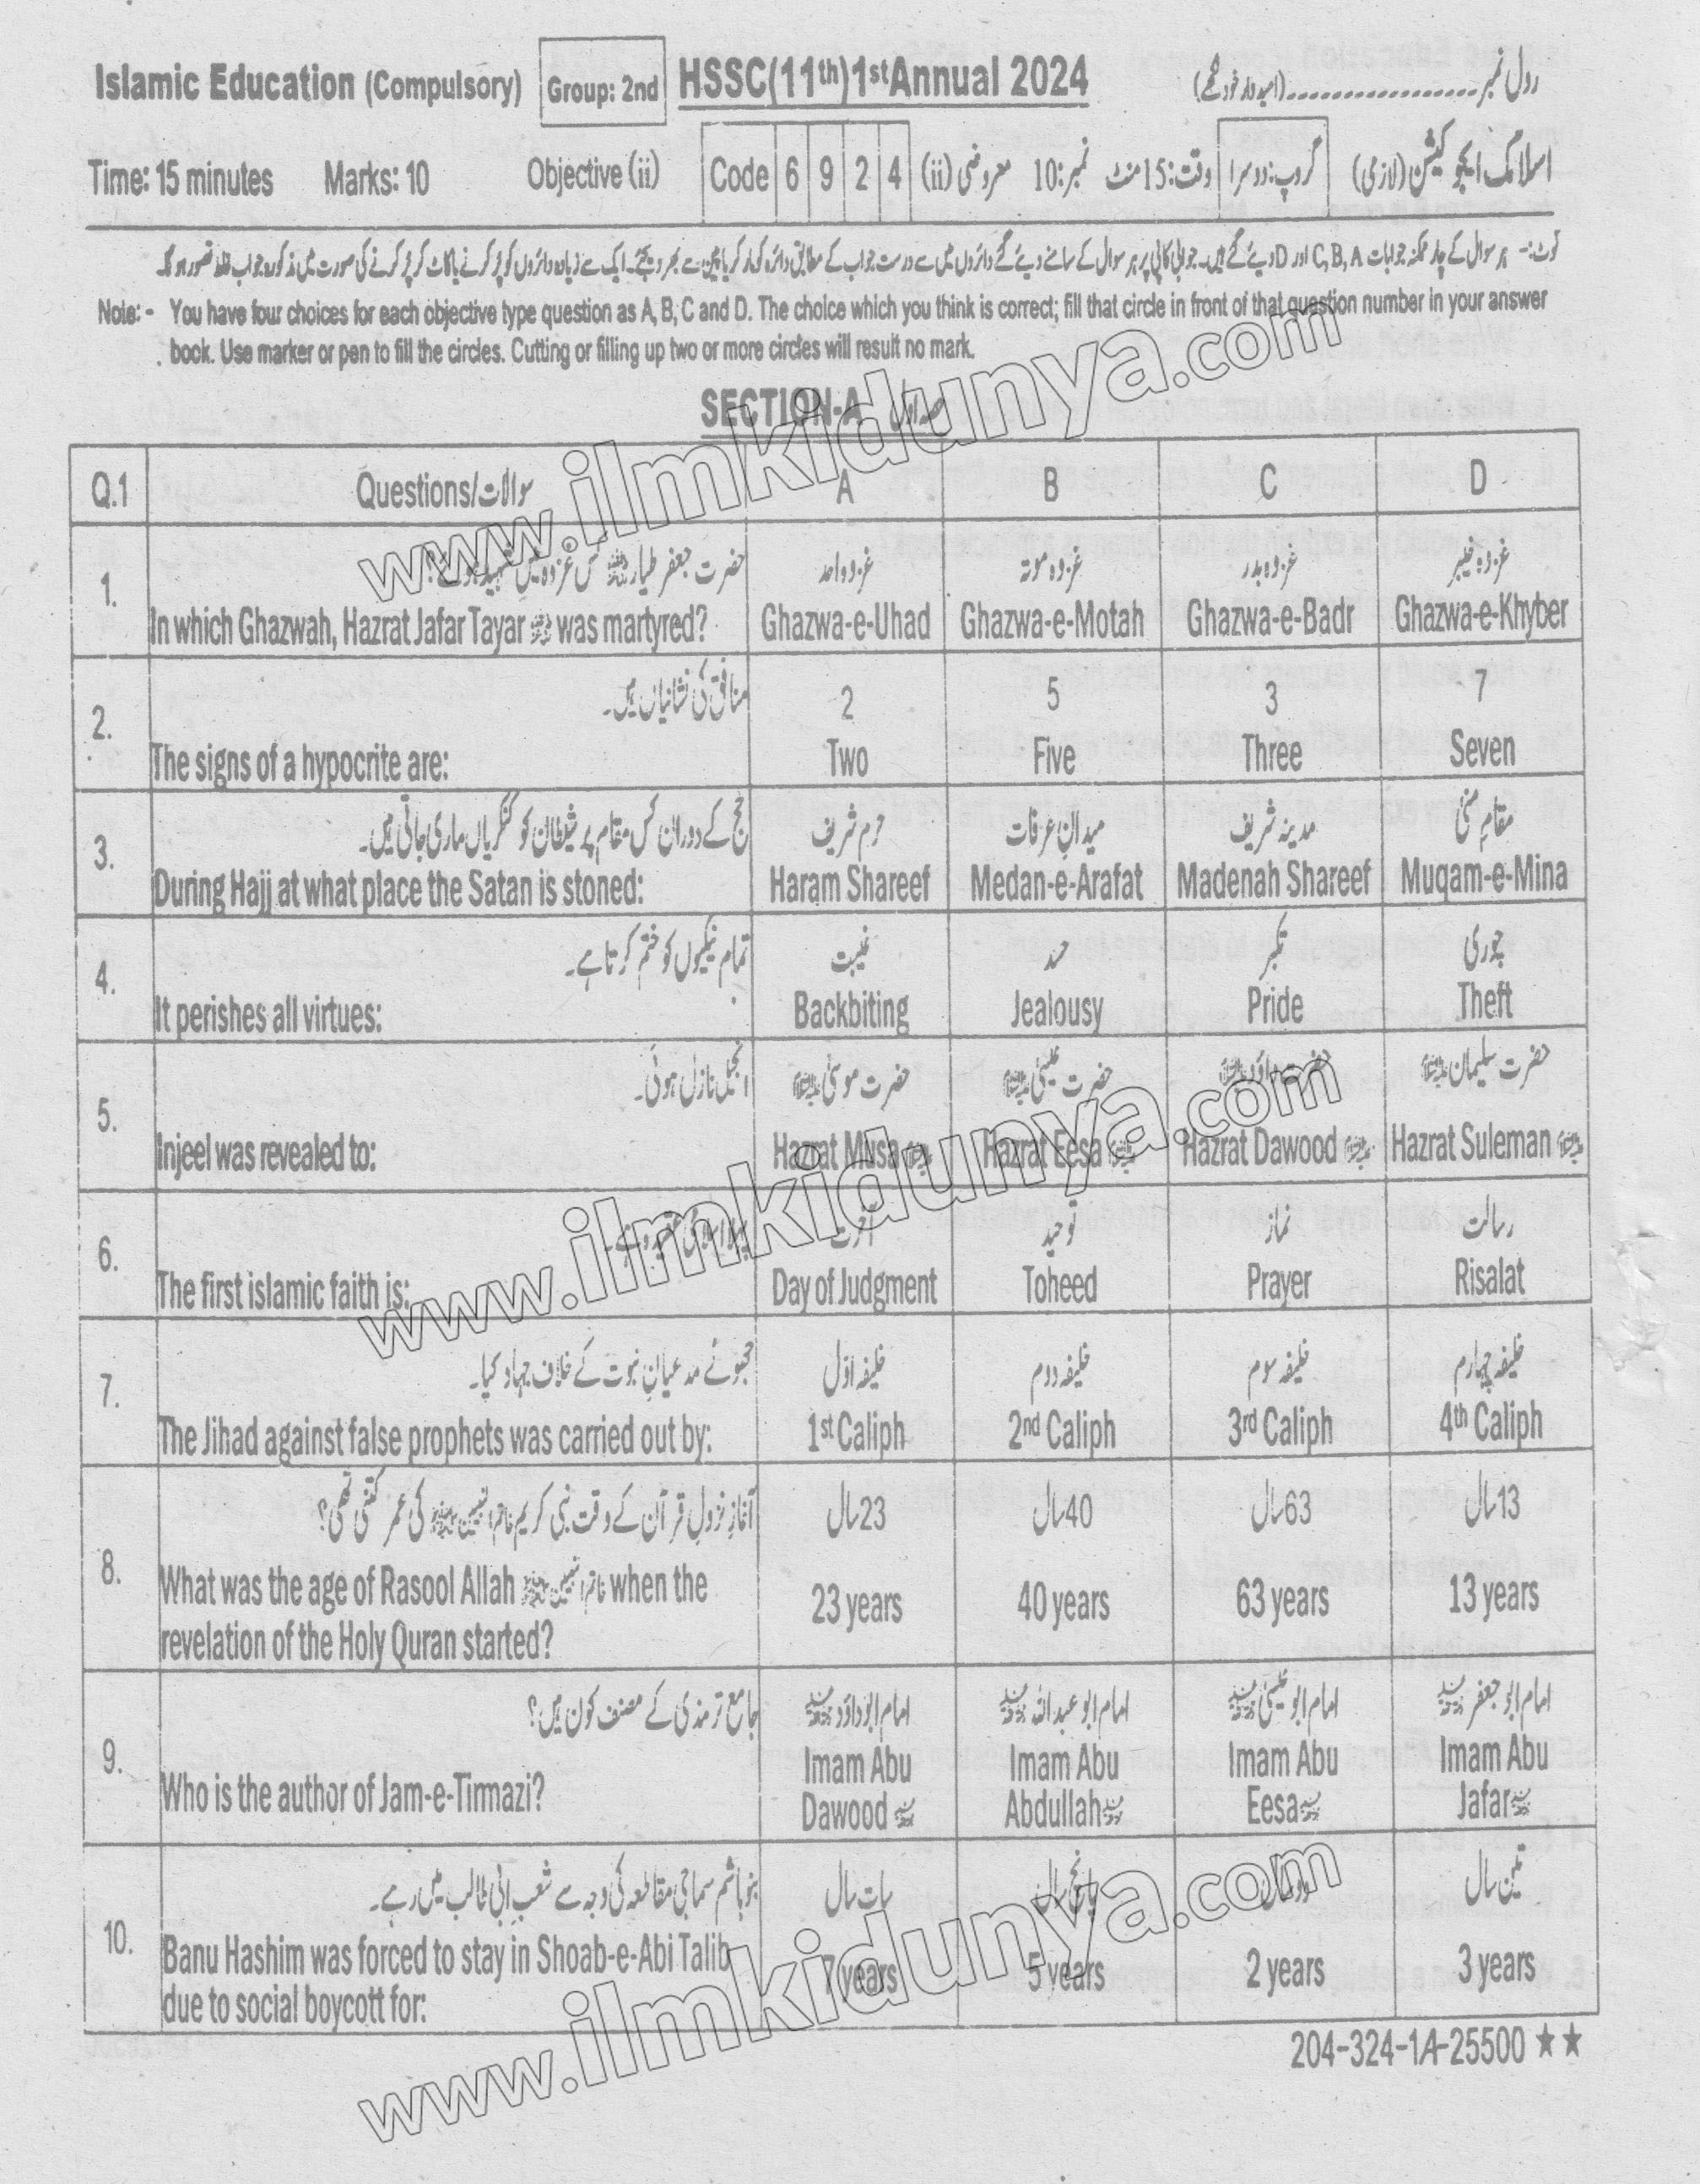 Islamic Education (Compulsory) Group: 2nd HSSC(11th)1stAnnual 2024 رول نمبر------------------(امیدوار خود لکھے)
Time: 15 minutes Marks: 10 Objective (ii) Code 6 9 2 4 معروضی (ii) نمبر:10 وقت:15منٹ گروپ:دوسرا اسلامک ایجوکیشن (لازمی)
نوٹ:- ہر سوال کے چار ممکنہ جوابات C, B, A اور D دیئے گئے ہیں۔ جوابی کاپی پر ہر سوال کے سامنے دیئے گئے دائروں میں سے درست جواب کے مطابق دائرہ کو مارکر یا پین سے بھر دیجئے۔ ایک سے زیادہ دائروں کو پُر کرنے یا کاٹ کر پُر کرنے کی صورت میں مذکورہ جواب غلط تصور ہو گا۔
Note: - You have four choices for each objective type question as A, B, C and D. The choice which you think is correct; fill that circle in front of that question number in your answer
book. Use marker or pen to fill the circles. Cutting or filling up two or more circles will result no mark.
SECTION-A حصہ اول
Q.1 Questions/سوالات A B C D
1. حضرت جعفر طیار کس غزوہ میں شہید ہوئے؟ غزوہ احد غزوہ موتہ غزوہ بدر غزوہ خیبر
In which Ghazwah, Hazrat Jafar Tayar was martyred? Ghazwa-e-Uhad Ghazwa-e-Motah Ghazwa-e-Badr Ghazwa-e-Khyber
2. منافق کی نشانیاں ہیں۔ 2 5 3 7
The signs of a hypocrite are: Two Five Three Seven
3. حج کے دوران کس مقام پر شیطان کو کنکریاں ماری جاتی ہیں۔ حرم شریف میدانِ عرفات مدینہ شریف مقامِ منیٰ
During Hajj at what place the Satan is stoned: Haram Shareef Medan-e-Arafat Madenah Shareef Muqam-e-Mina
4. تمام نیکیوں کو ختم کرتا ہے۔ غیبت حسد تکبر چوری
It perishes all virtues: Backbiting Jealousy Pride Theft
5. انجیل نازل ہوئی۔ حضرت موسیٰ حضرت عیسیٰ حضرت داؤد حضرت سلیمان
Injeel was revealed to: Hazrat Musa Hazrat Eesa Hazrat Dawood Hazrat Suleman
6. پہلا اسلامی عقیدہ ہے۔ آخرت توحید نماز رسالت
The first islamic faith is: Day of Judgment Toheed Prayer Risalat
7. جھوٹے مدعیانِ نبوت کے خلاف جہاد کیا۔ خلیفہ اوّل خلیفہ دوم خلیفہ سوم خلیفہ چہارم
The Jihad against false prophets was carried out by: 1st Caliph 2nd Caliph 3rd Caliph 4th Caliph
8. آغازِ نزولِ قرآن کے وقت نبی کریم خاتم النبیین کی عمر کتنی تھی؟ 23سال 40سال 63سال 13سال
What was the age of Rasool Allah خاتم النبیین when the 23 years 40 years 63 years 13 years
revelation of the Holy Quran started?
9. جامع ترمذی کے مصنف کون ہیں؟ امام ابوداؤد امام ابو عبداللہ امام ابو عیسیٰ امام ابو جعفر
Who is the author of Jam-e-Tirmazi? Imam Abu Dawood Imam Abu Abdullah Imam Abu Eesa Imam Abu Jafar
10. بنو ہاشم سماجی مقاطعہ کی وجہ سے شعبِ ابی طالب میں رہے۔ سات سال پانچ سال دو سال تین سال
Banu Hashim was forced to stay in Shoab-e-Abi Talib 7 years 5 years 2 years 3 years
due to social boycott for:
204-324-1A-25500 ★★
www.ilmkidunya.com
www.ilmkidunya.com
www.ilmkidunya.com